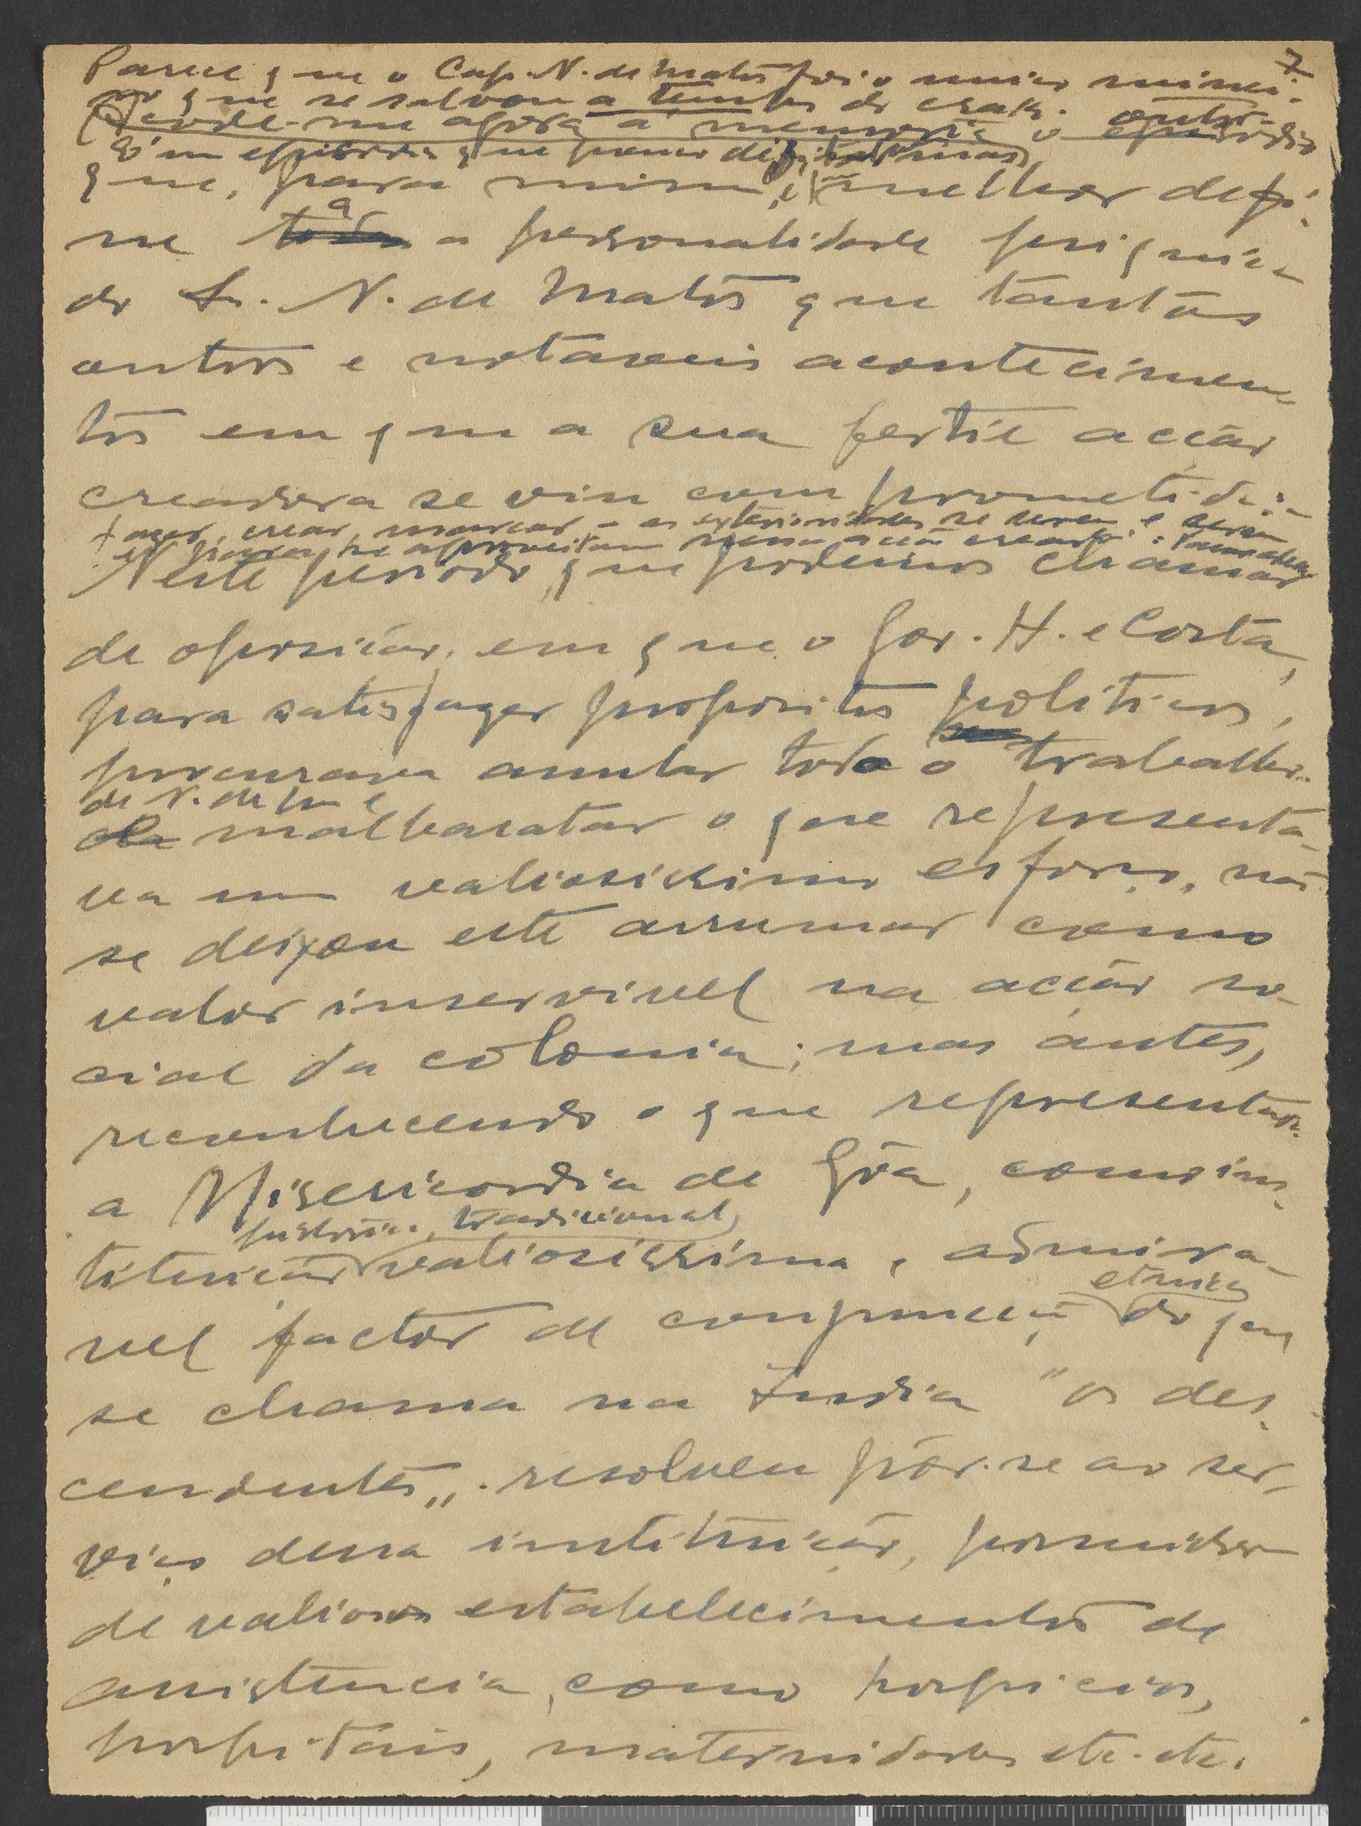 7
Parece que o Cap. N. de Matos foi o unico minei-
ro que se salvou a tempo do crak.
Acode-me agora á memoria o outro episodio
que, para mim, é melhor defi-
ne a personalidade
do Sr. N. de Matos que tantos
outros e notaveis acontecimen-
tos em que a sua fertil acção
creadora se viu comprometida:
fazer, crear, marcar - os exteriorisadores se servem e
Neste periodo, que podemos chamar
de oposição, em que o Gov. H. e Costa,
para satisfazer propositos politicos,
procurava anular todo o trabalho
de N. de M. e
malbaratar o que representa-
va um valiosissimo esforço, não
se deixou este arrumar como
valor inservivel na acção so-
cial da colonia; mas antes,
reconhecendo o que representava
a Misericordia de Gôa, como ins-
historica, tradicional,
tituição valiosissima, admira-
etnica
vel factor de conjunção do que
se chama na India "os des-
cendentes", resolveu pôr-se ao ser-
viço dessa instituição, possuidora
de valiosos estabelecimentos de
assistencia, como hospicios,
hospitais, maternidades etc. etc.